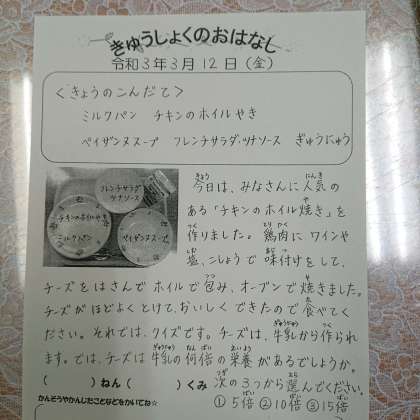 きゅうしょくのおはなし
令和3年3月12日(金)
<きょうのこんだて>
ミルクパン チキンのホイルやき
ペイザンヌスープ フレンチサラダ・ツナソース ぎゅうにゅう
フレンチサラダ
ツナソース
チキンのホイルやき
ミルクパン
ペイザンヌスープ
きょう にんき
今日は、みなさんに人気の
や
ある「チキンのホイル焼き」を
つく とりにく
作りました。鶏肉にワインや
しお あじつ
塩、こしょうで味付けをして、
つつ や
チーズをはさんでホイルで包み、オーブンで焼きました。
た
チーズがほどよくとけて、おいしくできたので食べてく
ぎゅうにゅう つく
ださい。それでは、クイズです。チーズは、牛乳から作られ
ぎゅうにゅう なんばい えいよう
ます。では、チーズは牛乳の何倍の栄養があるでしょうか。
つぎ えら
( )ねん( )くみ 次の3つから選んでください。
かんそうやかんじたことなどをかいてね☆
①5倍 ②10倍 ③15倍